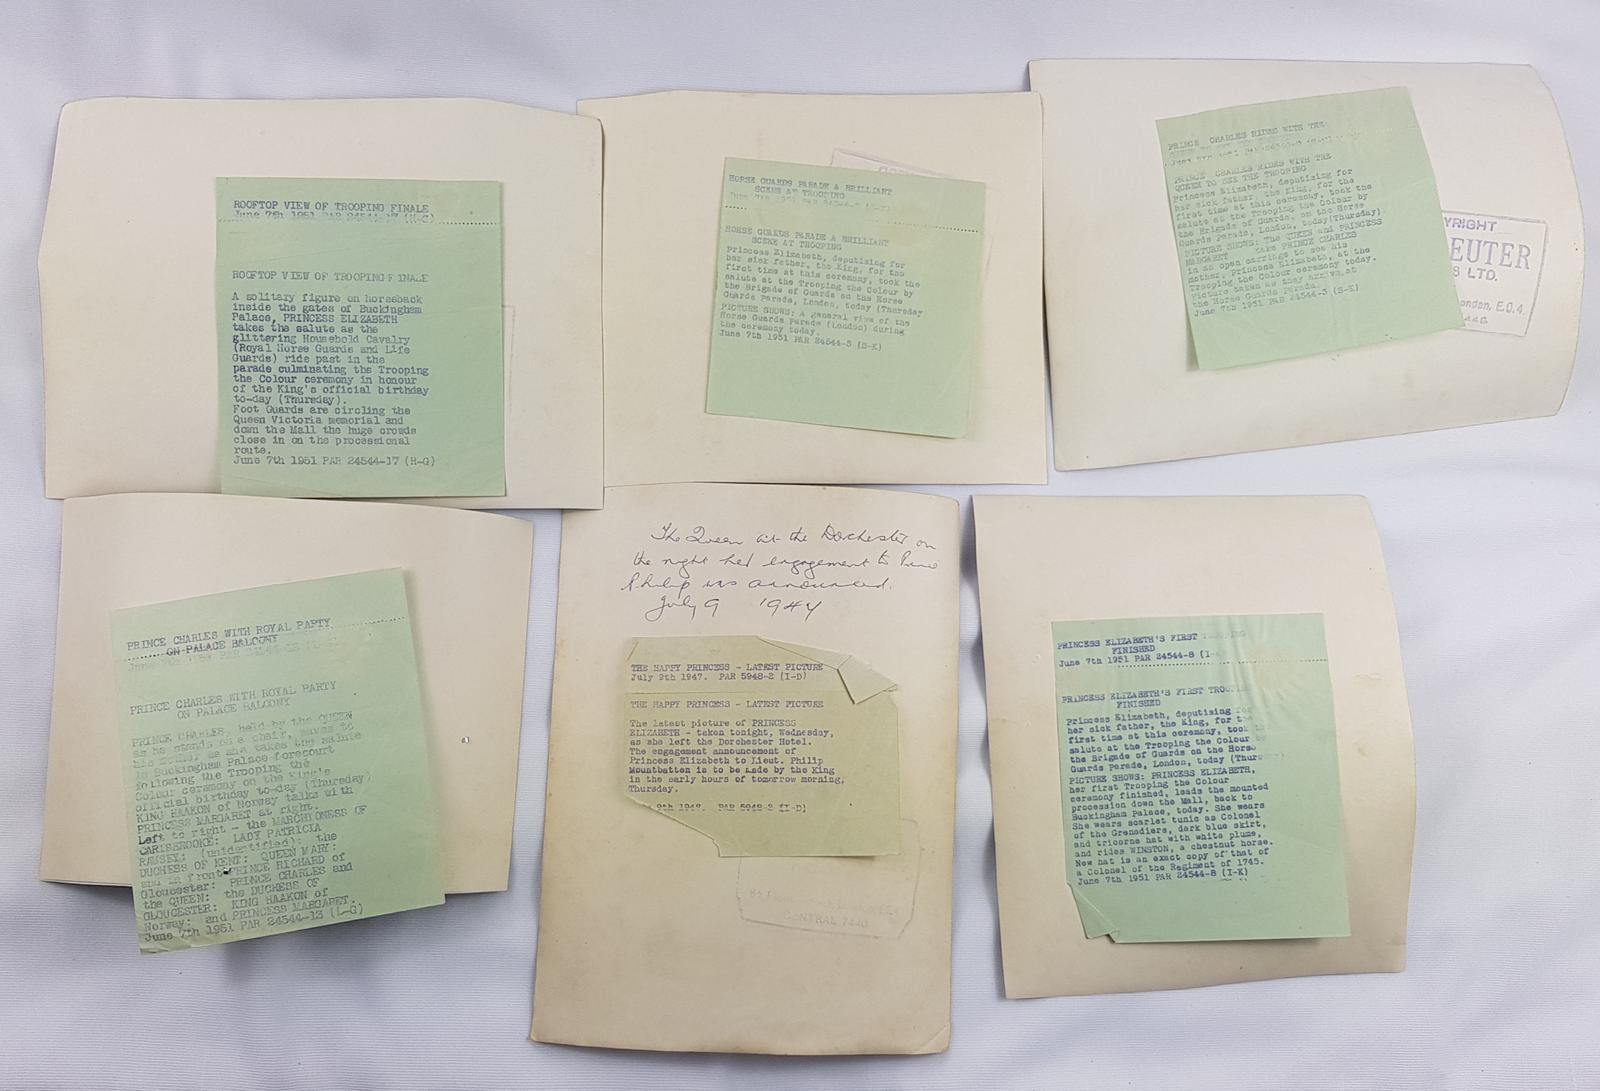 ROOFTOP VIEW OF TROOPING FINALE
June 7th 1951 PAR 24544-17 (H-G)
ROOFTOP VIEW OF TROOPING FINALE
A solitary figure on horseback
inside the gates of Buckingham
Palace, PRINCESS ELIZABETH
takes the salute as the
glittering Household Cavalry
(Royal Horse Guards and Life
Guards) ride past in the
parade culminating the Trooping
the Colour ceremony in honour
of the King's official birthday
to-day (Thursday).
Foot Guards are circling the
Queen Victoria memorial and
down the Mall the huge crowds
close in on the processional
route.
June 7th 1951 PAR 24544-17 (H-G)
HORSE GUARDS PARADE A BRILLIANT
SCENE AT TROOPING
June 7th 1951 PAR
HORSE GUARDS PARADE A BRILLIANT
SCENE AT TROOPING
Princess Elizabeth, deputising for
her sick father, the King, for the
first time at this ceremony, took the
salute at the Trooping the Colour by
the Brigade of Guards on the Horse
Guards Parade, London, today (Thursday
PICTURE SHOWS: A general view of the
Horse Guards Parade (London) during
the ceremony today.
June 7th 1951 PAR 24544-5 (S-K)
PRINCE CHARLES RIDES WITH THE
PRINCE CHARLES RIDES WITH THE
QUEEN TO SEE THE TROOPING
Princess Elizabeth, deputising for
her sick father, the King, for the
first time at this ceremony, took the
salute at the Trooping the Colour by
the Brigade of Guards, on the Horse
Guards Parade, London, today(Thursday)
PICTURE SHOWS: The QUEEN and PRINCESS
MARGARET take PRINCE CHARLES
in an open carriage to see his
mother, Princess Elizabeth, at the
Trooping the Colour ceremony today.
Picture taken as they arrive at
the Horse Guards Parade.
June 7th 1951 PAR 24544-3 (S-K)
YRIGHT
EUTER
S LTD.
ondon, E.C.4.
PRINCE CHARLES WITH ROYAL PARTY
ON PALACE BALCONY
PRINCE CHARLES WITH ROYAL PARTY
ON PALACE BALCONY
PRINCE CHARLES, held by the QUEEN
as he stands on a chair, waves to
his mother as she takes the salute
in Buckingham Palace forecourt
following the Trooping the
Colour ceremony on the King's
official birthday to-day (Thursday)
KING HAAKON of Norway talks with
PRINCESS MARGARET at right.
Left to right - the MARCHIONESS OF
CARISBROOKE: LADY PATRICIA
RAMSEY: (unidentified): the
DUCHESS OF KENT: QUEEN MARY:
and in front PRINCE RICHARD of
Gloucester: PRINCE CHARLES and
the QUEEN: the DUCHESS OF
GLOUCESTER: KING HAAKON of
Norway: and PRINCESS MARGARET.
June 7th 1951 PAR 24544-13 (L-G)
The Queen at the Dorchester on
the night her engagement to
Philip was announced.
July 9 1947
THE HAPPY PRINCESS - LATEST PICTURE
July 9th 1947. PAR 5948-2 (I-D)
THE HAPPY PRINCESS - LATEST PICTURE
The latest picture of PRINCESS
ELIZABETH - taken tonight, Wednesday,
as she left the Dorchester Hotel.
The engagement announcement of
Princess Elizabeth to Lieut. Philip
Mountbatten is to be made by the King
in the early hours of tomorrow morning,
Thursday.
9th 1947. PAR 5948-2 (I-D)
CENTRAL 7440
PRINCESS ELIZABETH'S FIRST
FINISHED
June 7th 1951 PAR 24544-8 (I-
PRINCESS ELIZABETH'S FIRST TROO
FINISHED
Princess Elizabeth, deputising for
her sick father, the King, for the
first time at this ceremony, took
salute at the Trooping the Colour
the Brigade of Guards on the Horse
Guards Parade, London, today (Thur
PICTURE SHOWS: PRINCESS ELIZABETH,
her first Trooping the Colour
ceremony finished, leads the mounted
procession down the Mall, back to
Buckingham Palace, today. She wears
She wears scarlet tunic as Colonel
of the Grenadiers, dark blue skirt,
and tricorne hat with white plume,
and rides WINSTON, a chestnut horse.
New hat is an exact copy of that of
a Colonel of the Regiment of 1745.
June 7th 1951 PAR 24544-8 (I-K)